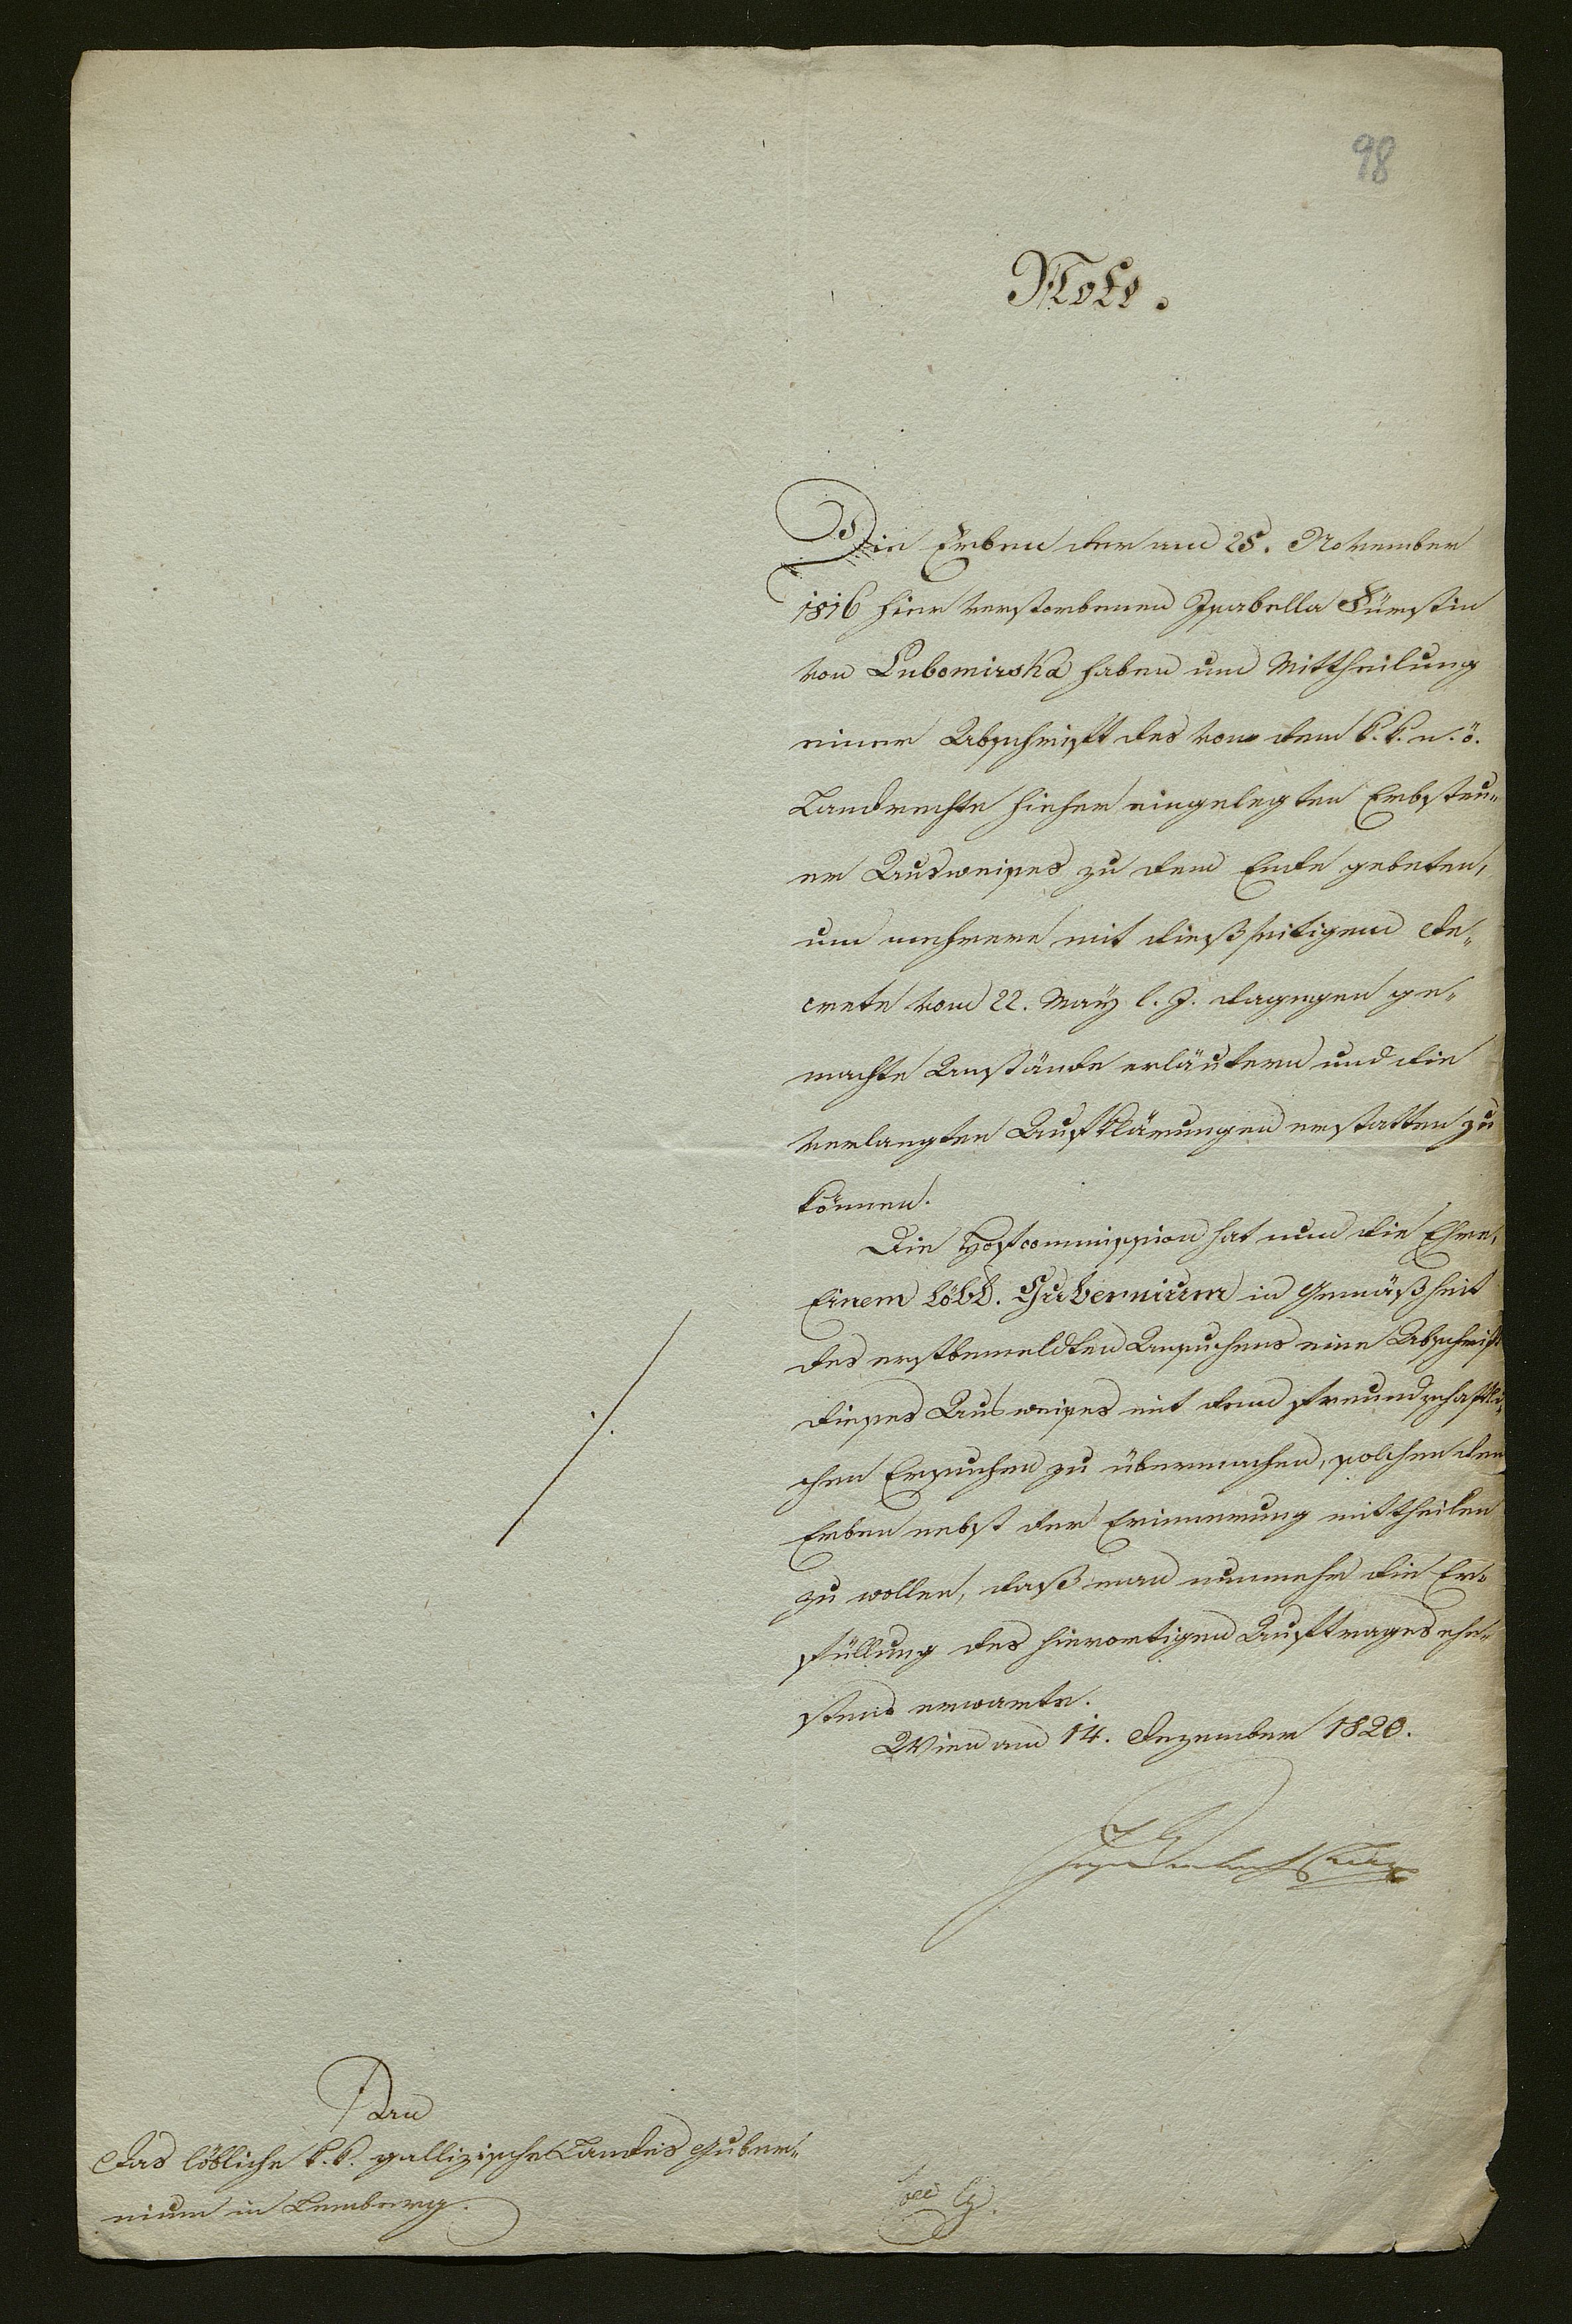 98
Note.
Die Erben der am 25. November
1816 hier verstorbenen Isabella Fürstin
von Lubomirska haben um Mittheilung
einer Abschrift des von dem k. k. n. ö.
Landrechte hieher eingelegten Erbsteu„
er Ausweises zu dem Ende gebeten,
um mehrere mit dießseitigem De„
crete vom 22. May l. J. dagegen ge„
machte Anstände erläutern und die
verlangten Aufklärungen erstatten zu
können.
Die Hofcommission hat nun die Ehre,
Einem löbl. Gubernium in Gemäßheit
des erstbemeldten Ansuchens eine Abschrift
dieses Ausweises mit dem freundschaftli„
chen Ersuchen zu übermachen, solchen den
Erben nebst der Erinnerung mittheilen
zu wollen, daß man nunmehr die Er„
füllung des hierortigen Auftrages ehe„
stens erwarte.
Wien am 14. Dezember 1820.
An
das löbliche k. k. gallizische Landes Guber„
nium in Lemberg.